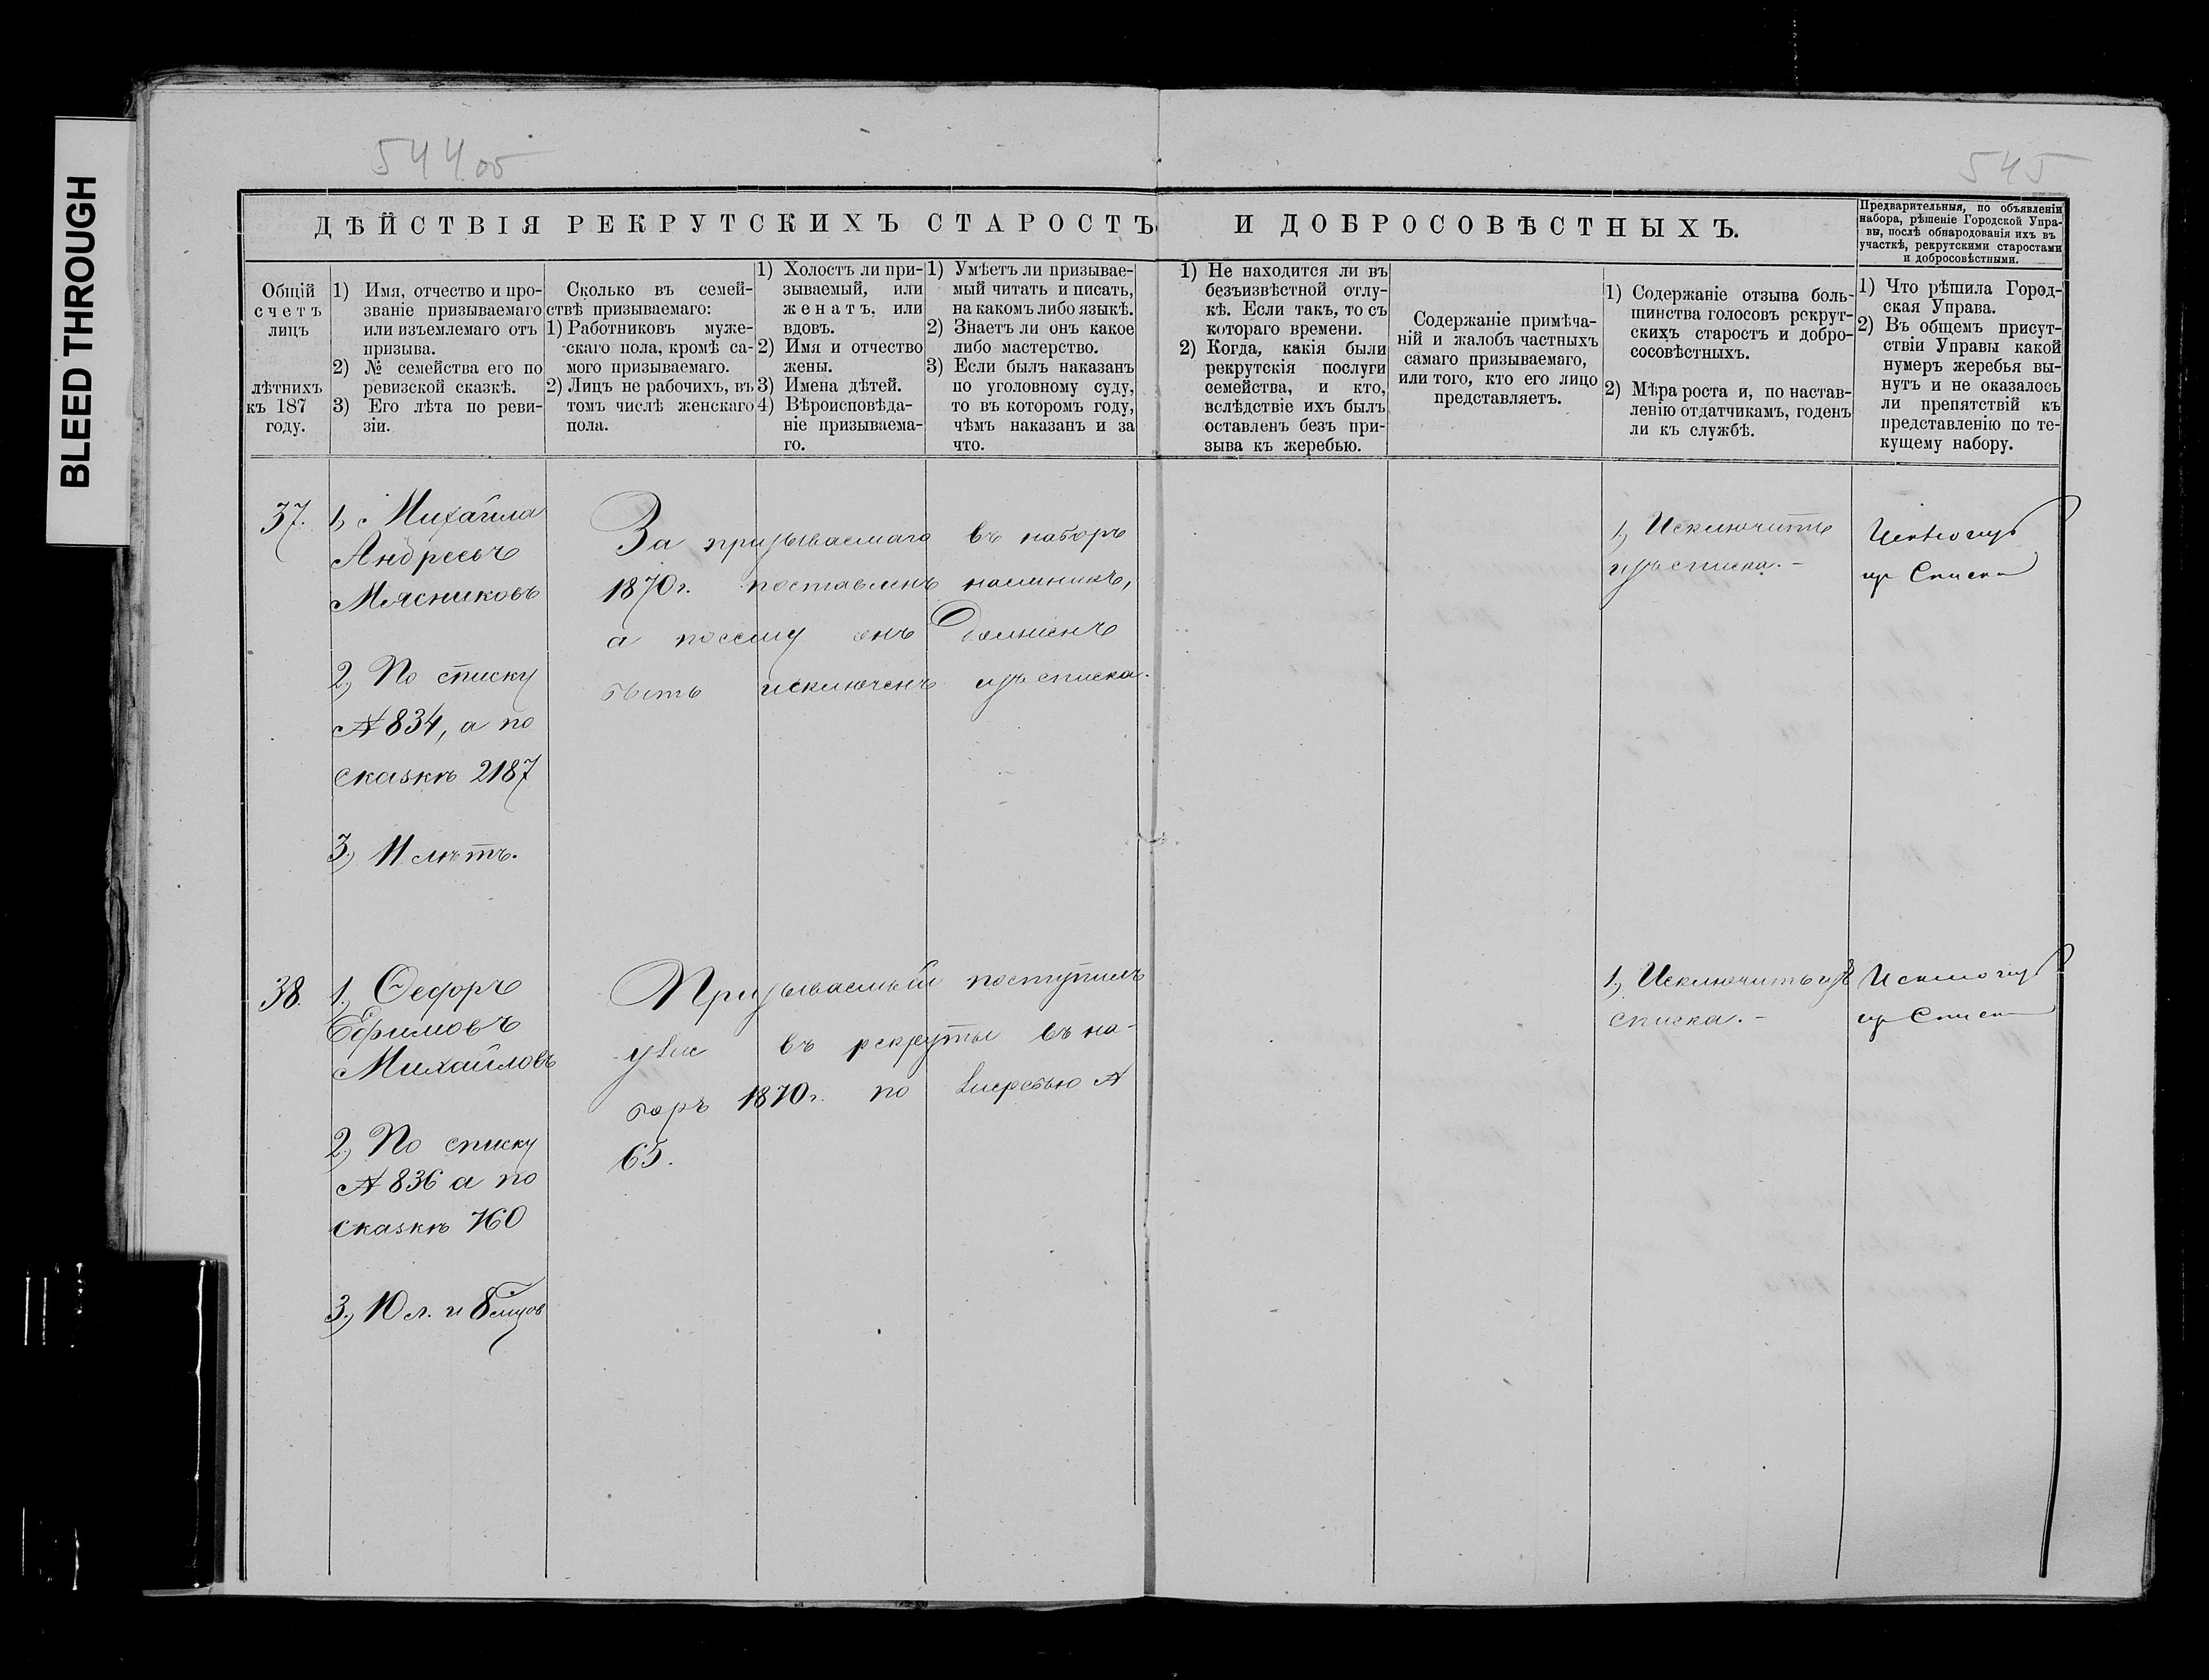 BLEED THROUGH
544 об
545
ДѢЙСТВІЯ РЕКРУТСКИХЪ СТАРОСТЪ И ДОБРОСОВѢСТНЫХЪ.
Предварительныя, по объявленіи
набора, рѣшеніе Городской Упра-
вы, послѣ обнародованія ихъ въ
участкѣ, рекрутскими старостами
и добросовѣстными.
Общій
счетъ
лицъ
лѣтнихъ
къ 187
году.
1) Имя, отчество и про-
званіе призываемаго
или изъемлемаго отъ
призыва.
2) № семейства его по
ревизской сказкѣ.
3) Его лѣта по реви-
зіи.
Сколько въ семей-
ствѣ призываемаго:
1) Работниковъ муже-
скаго пола, кромѣ са-
мого призываемаго.
2) Лицъ не рабочихъ, въ
томъ числѣ женскаго
пола.
1) Холостъ ли при-
зываемый, или
женатъ, или
вдовъ.
2) Имя и отчество
жены.
3) Имена дѣтей.
4) Вѣроисповѣда-
ніе призываема-
го.
1) Умѣетъ ли призывае-
мый читать и писать,
на какомъ либо языкѣ.
2) Знаетъ ли онъ какое
либо мастерство.
3) Если былъ наказанъ
по уголовному суду,
то въ которомъ году,
чѣмъ наказанъ и за
что.
1) Не находится ли въ
безъизвѣстной отлу-
кѣ. Если такъ, то съ
котораго времени.
2) Когда, какія были
рекрутскія послуги
семейства, и кто,
вслѣдствіе ихъ былъ
оставленъ безъ при-
зыва къ жеребью.
Содержаніе примѣча-
ній и жалобъ частныхъ
самаго призываемаго,
или того, кто его лицо
представляетъ.
1) Содержаніе отзыва боль-
шинства голосовъ рекрут-
скихъ старостъ и добро-
сосовѣстныхъ.
2) Мѣра роста и, по настав-
ленію отдатчикамъ, годенъ
ли къ службѣ.
1) Что рѣшила Город-
ская Управа.
2) Въ общемъ присут-
ствіи Управы какой
нумеръ жеребья вы-
нутъ и не оказалось
ли препятствій къ
представленію по те-
кущему набору.
37.
1, Михайла
Андреевъ
Мясниковъ
2, По списку
№ 834, а по
сказкѣ 2187
3, 11 лѣтъ.
За призываемаго въ наборъ
1870 г. поставленъ наемникъ,
а посему онъ долженъ
быть исключенъ изъ списка.
1, Исключить
изъ списка.-
из Списка
38.
1, Федоръ
Ефимовъ
Михайловъ
2, По списку
№ 836 а по
сказкѣ 760
3, 10 л. и 8 мцов
Призываемый поступилъ
уже въ рекруты въ на-
боръ 1870 г. по жеребью №
65.
1, Исключить изъ
списка.-
из Списка